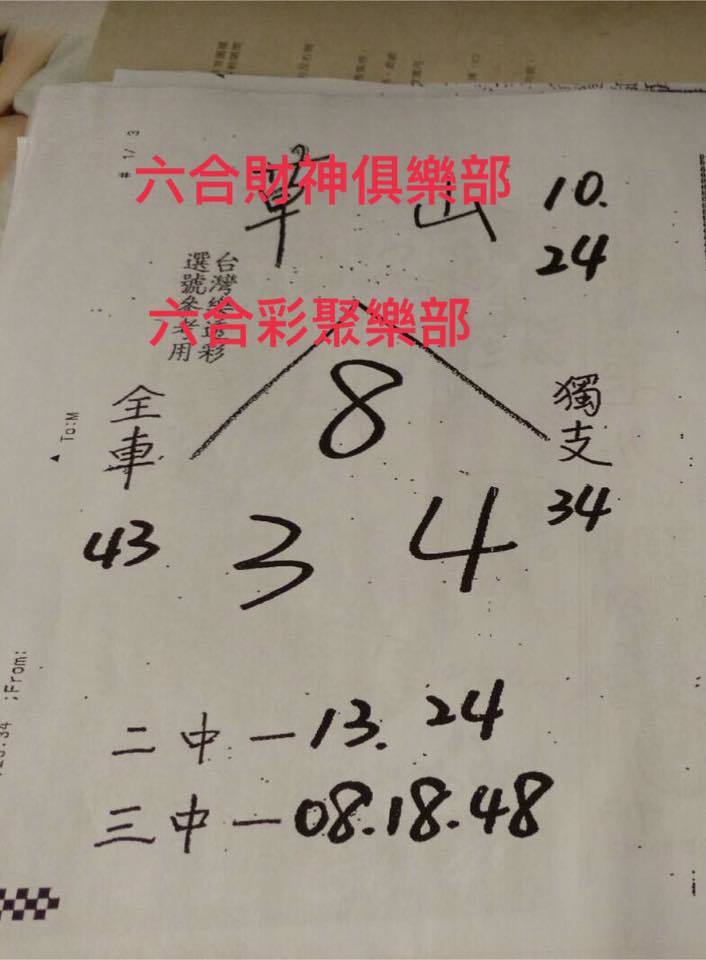 # 1/ 3
六合財神俱樂部
單
10.
24
台灣樂透彩
選號參考用
六合彩聚樂部
▲ To:M
全車
43
8
3 4
獨支
34
;From:
二中一13. 24
三中一08.18.48